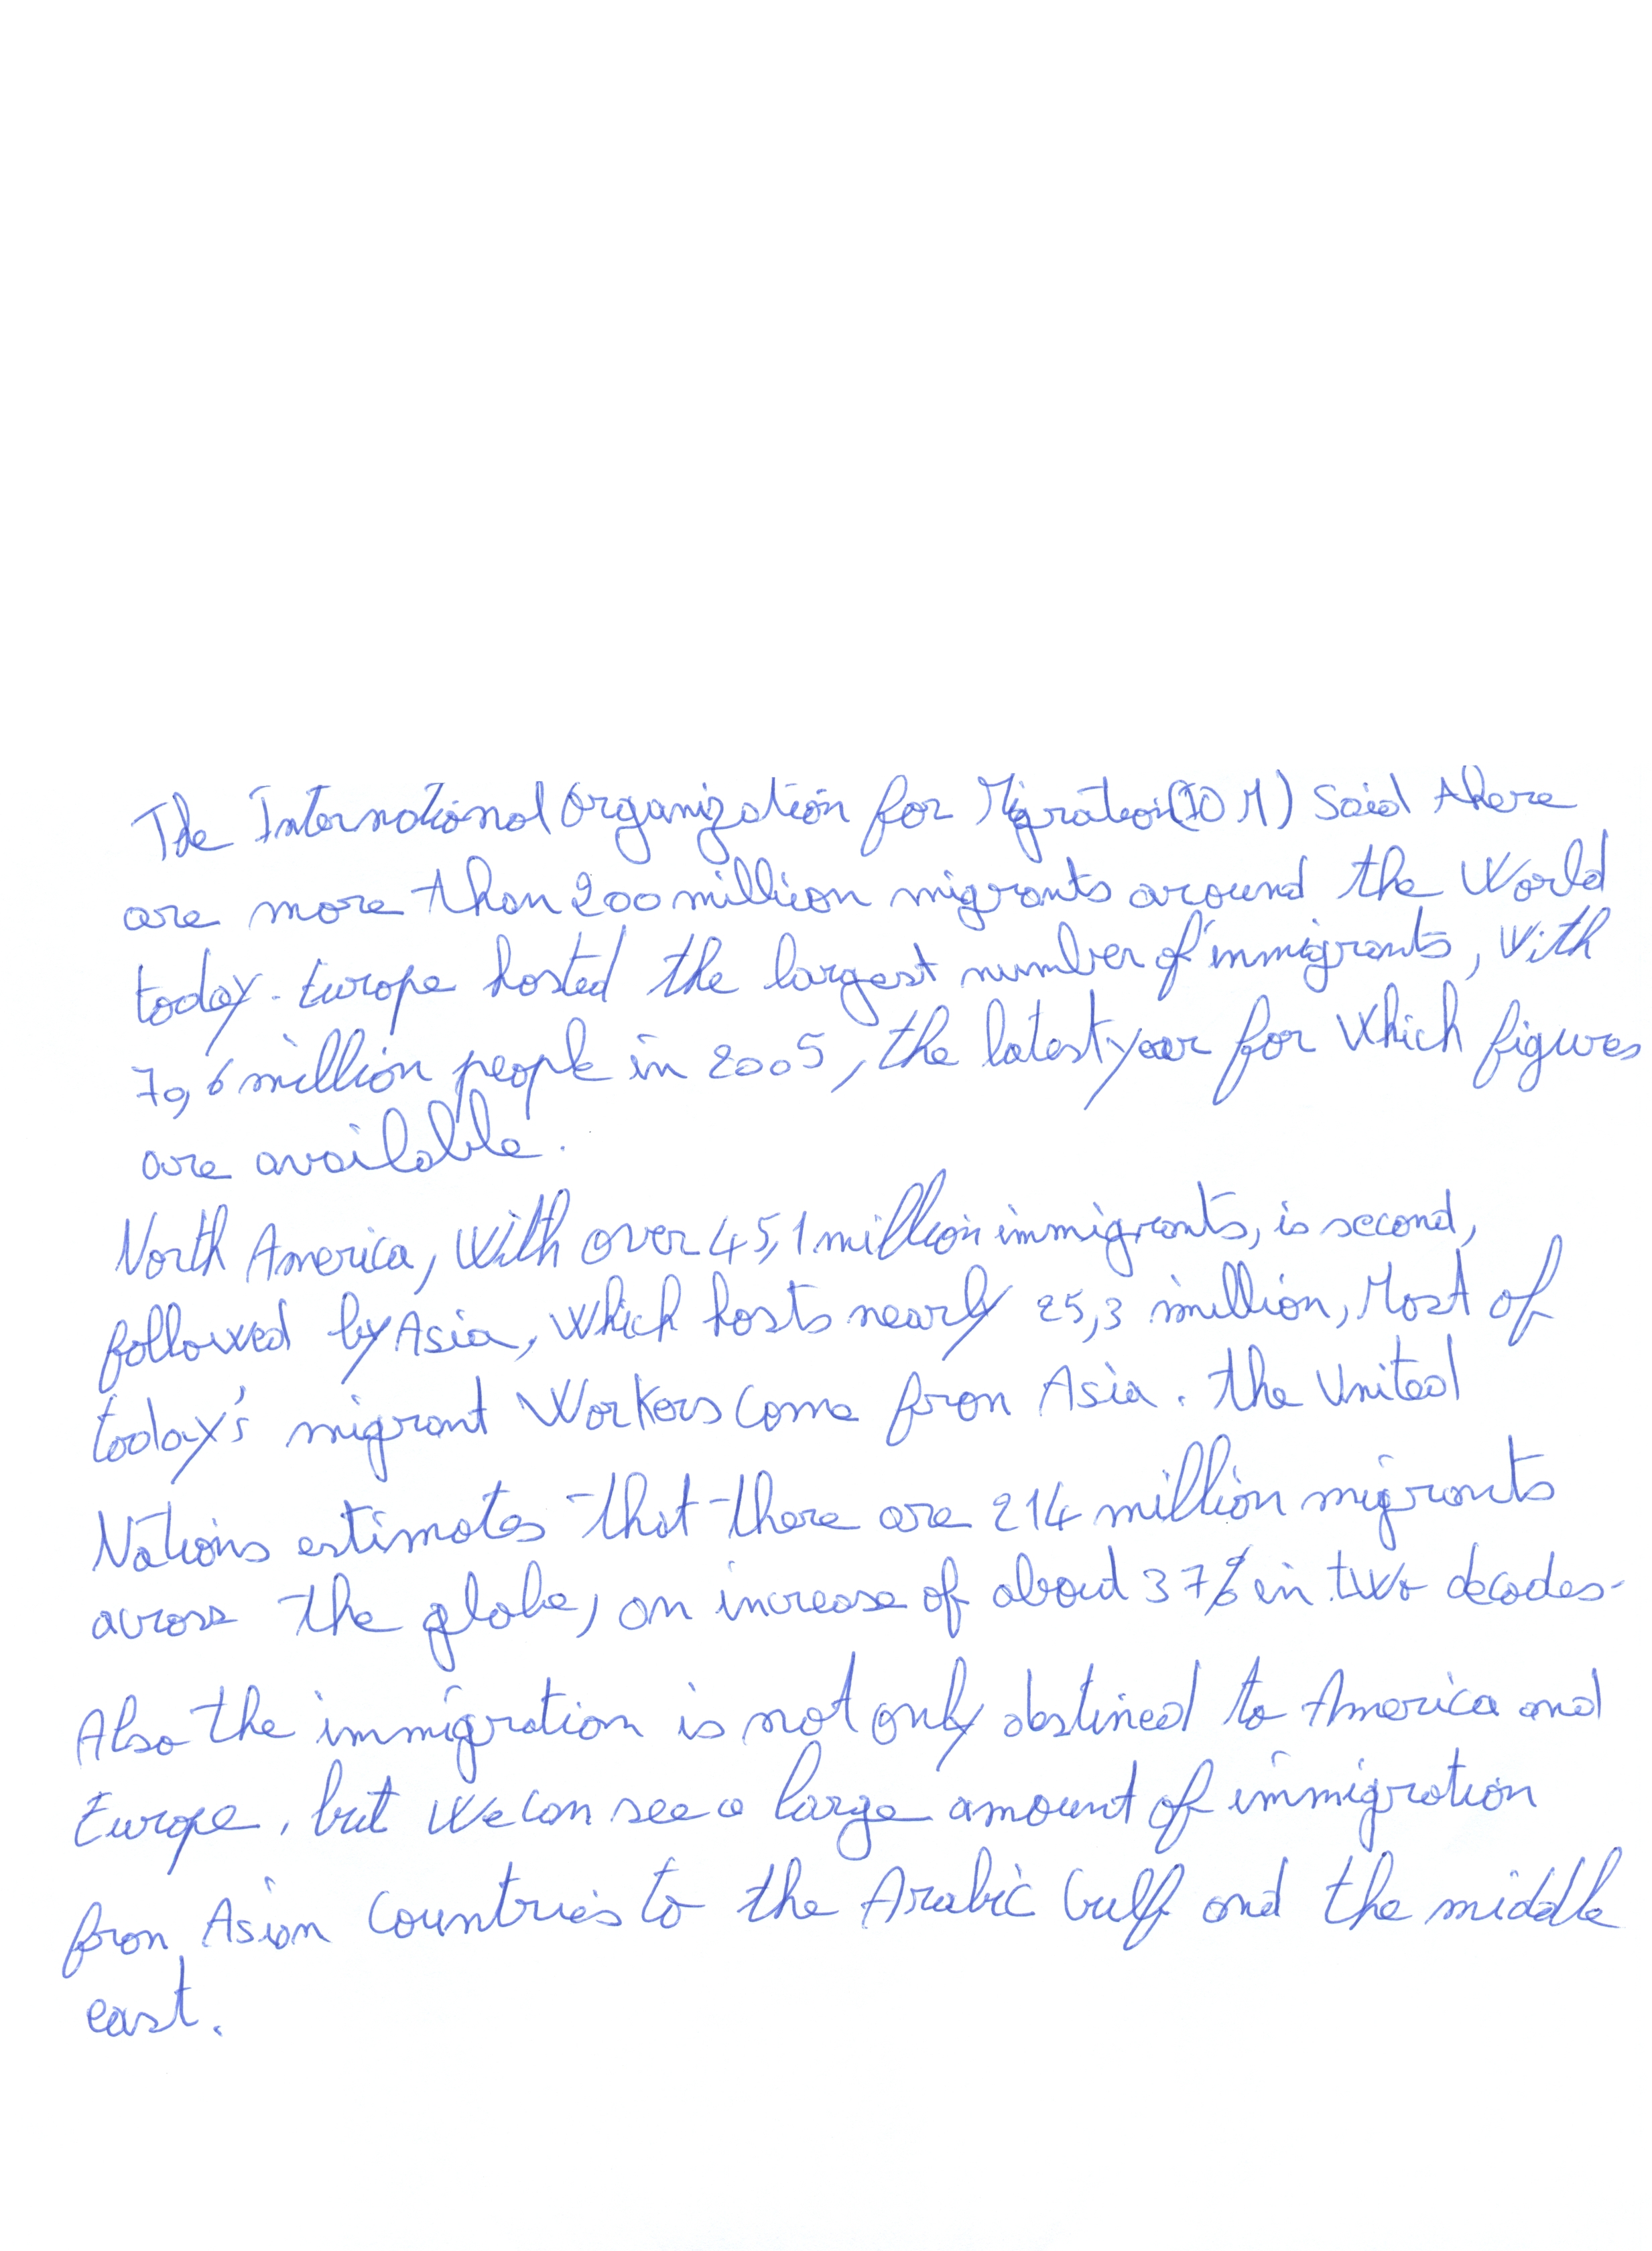 The International Organization for Migration (IOM) Said there
are more than 200 million migrants around the World
today. Europe hosted the largest number of immigrants, With
70,6 million people in 2005, the latest year for Which figures
are available.
North America, With over 45,1 million immigrants, is second,
followed by Asia, Which hosts nearly 25,3 million, Most of
today's migrant Workers Come from Asia. the United
Nations estimates that there are 214 million migrants
across the globe, an increase of about 37% in two decades.
Also the immigration is not only destined to America and
Europe, but We can see a large amount of immigration
from Asian Countries to the Arabic Gulf and the middle
east.